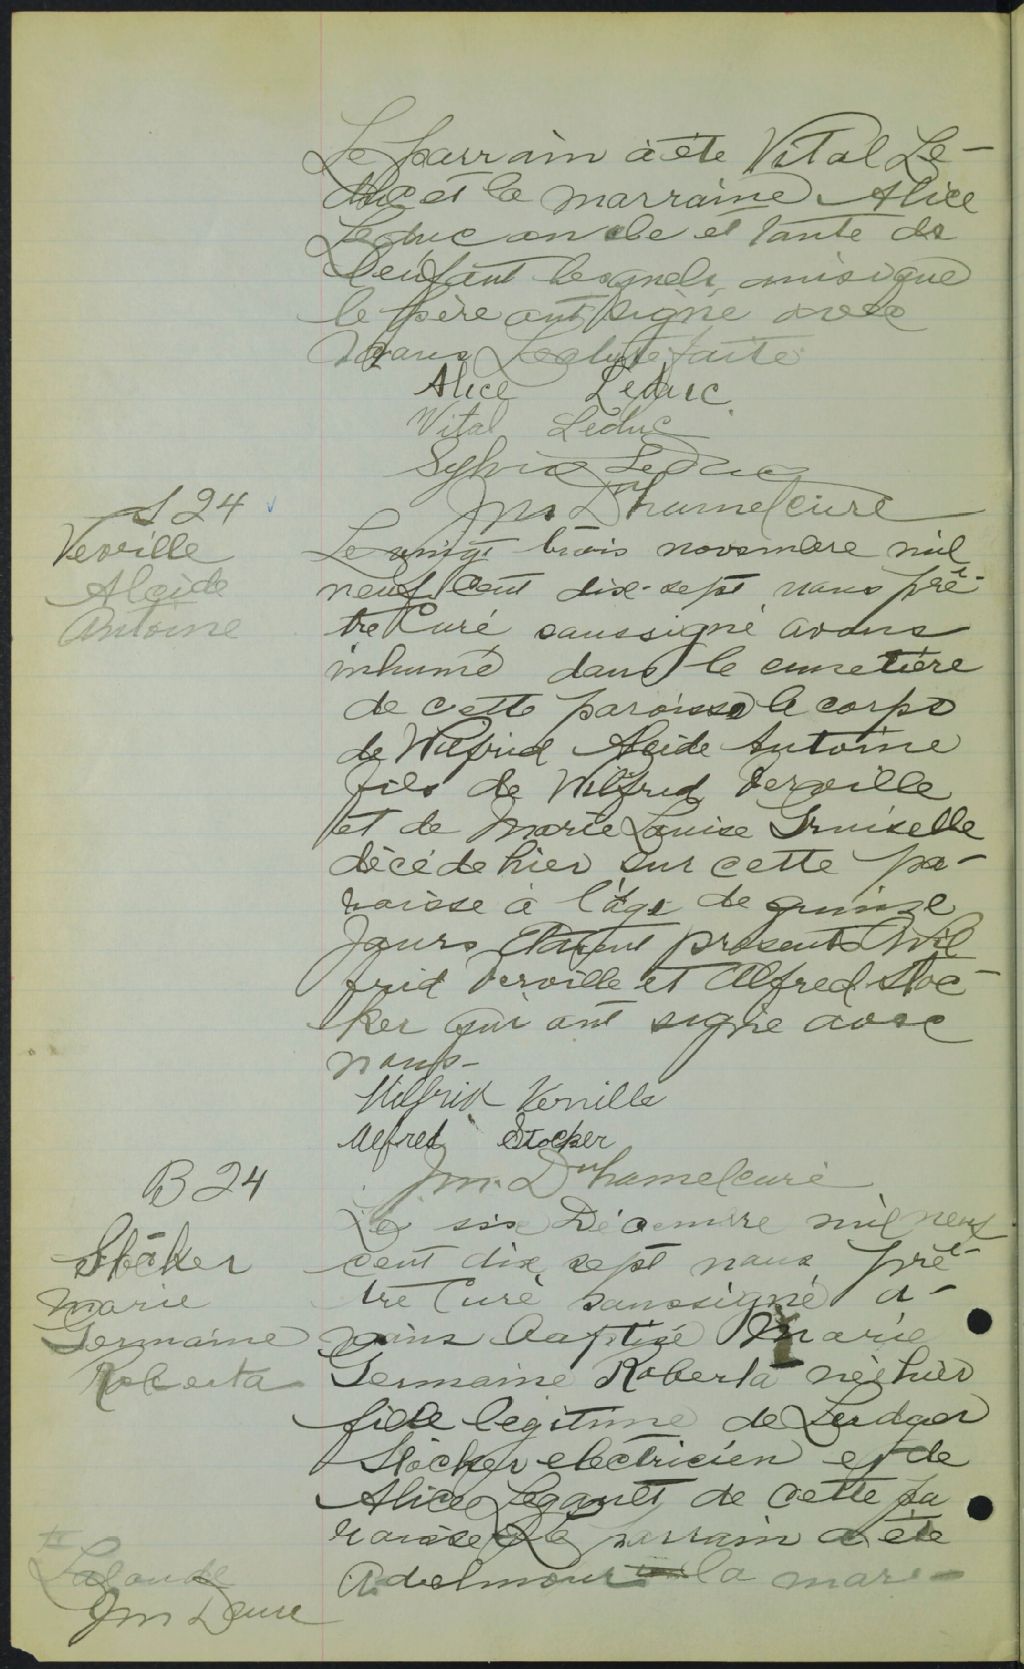 Le parrain a été Vital Le-
duc et la marraine Alice
Leduc oncle et tante de
l'enfant lesquels ainsi que
le père ont signé avec
nous Lecture faite
Alice Leduc
Vital Leduc
Sylvio Leduc
J M Duhamel curé
S 24
Verville
Alcide
Antoine
Le vingt trois novembre mil
neuf cent dix-sept nous prê-
tre Curé soussigné avons
inhumé dans le cimetière
de cette paroisse le corps
de Wilfrid Alcide Antoine
fils de Wilfrid Verville
et de Marie Louise Gruiselle
décédé hier sur cette pa-
roisse à l'âge de quinze
jours Etaient présents Wil
frid Verville et Alfred Stoc-
ker qui ont signé avec
nous-
Wilfrid Verville
Alfred Stocker
J M Duhamel curé
B 24
Stocker
Marie
Germaine
Roberta
Le six Décembre mil neuf
cent dix sept nous prê-
tre Curé soussigné a-
vons baptisé Marie
Germaine Roberta née hier
fille légitime de Ludger
Stocker electricien et de
Alice Legault de cette pa
roisse Le parrain a été
Adelmour la mar-
Lalonde
J M D curé